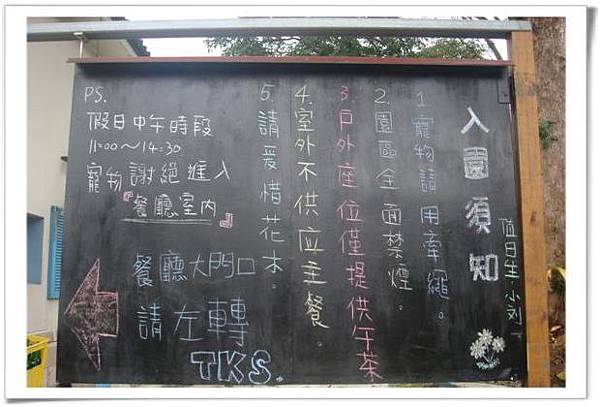 入園須知
值日生:小刘
1.寵物請用牽繩。
2.園區全面禁煙。
3.戶外座位僅提供午茶
4.室外不供应主餐。
5.請爰惜花木。
PS.
假日中午時段
11:00~14:30
寵物謝絕進入
『餐廳室內』
餐廳大門口
請左轉
TKS.